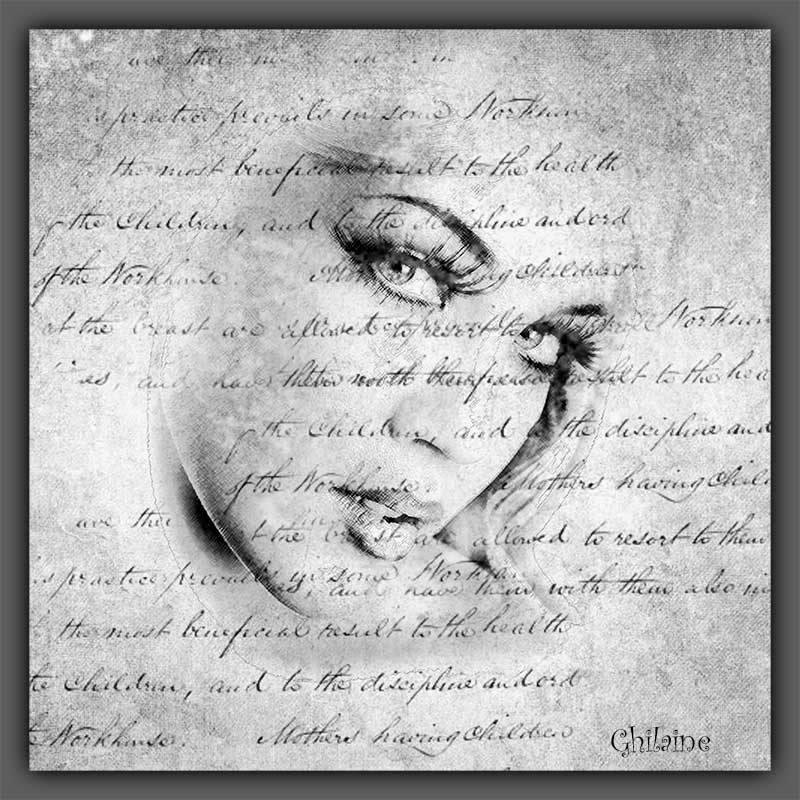 ave thei
is practice prevails in some Workhun
the most beneficial result to the health
of the Children, and to the discipline and ord
of the Workhouse. having Children
at the breast are allowed to resort to Workhun
as, and have them with beneficial result to the hea
of the Children, and to the discipline and
of the Workhouse. Mothers having Chil
ave thei
t the breast are allowed to resort to them
is practice prevails in some Workhun
, and have them with them also in
the most beneficial result to the health
the Children, and to the discipline and ord
the Workhouse. Mothers having Children
Ghilaine